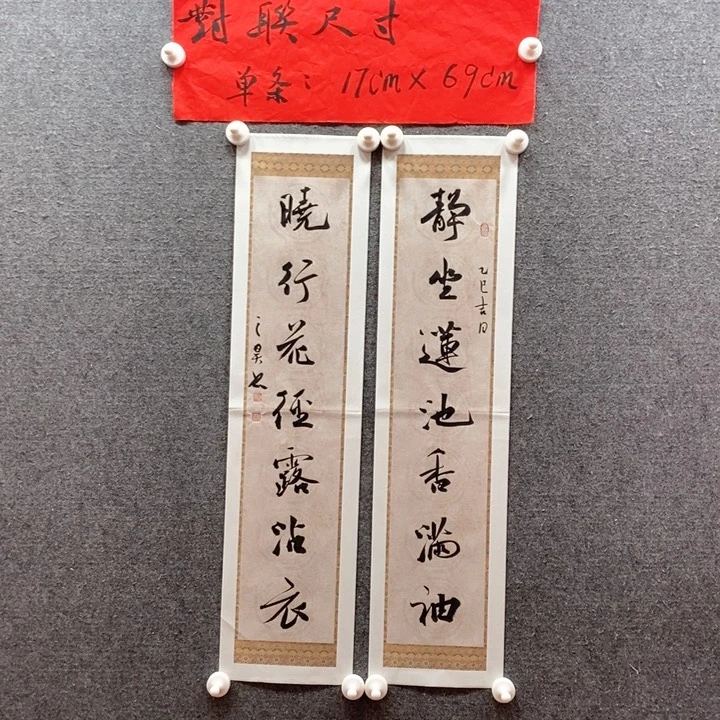 對联尺寸
单条：17cm×69cm
靜坐蓮池香滿袖
乙巳吉日
曉行花徑露沾衣
之昊书